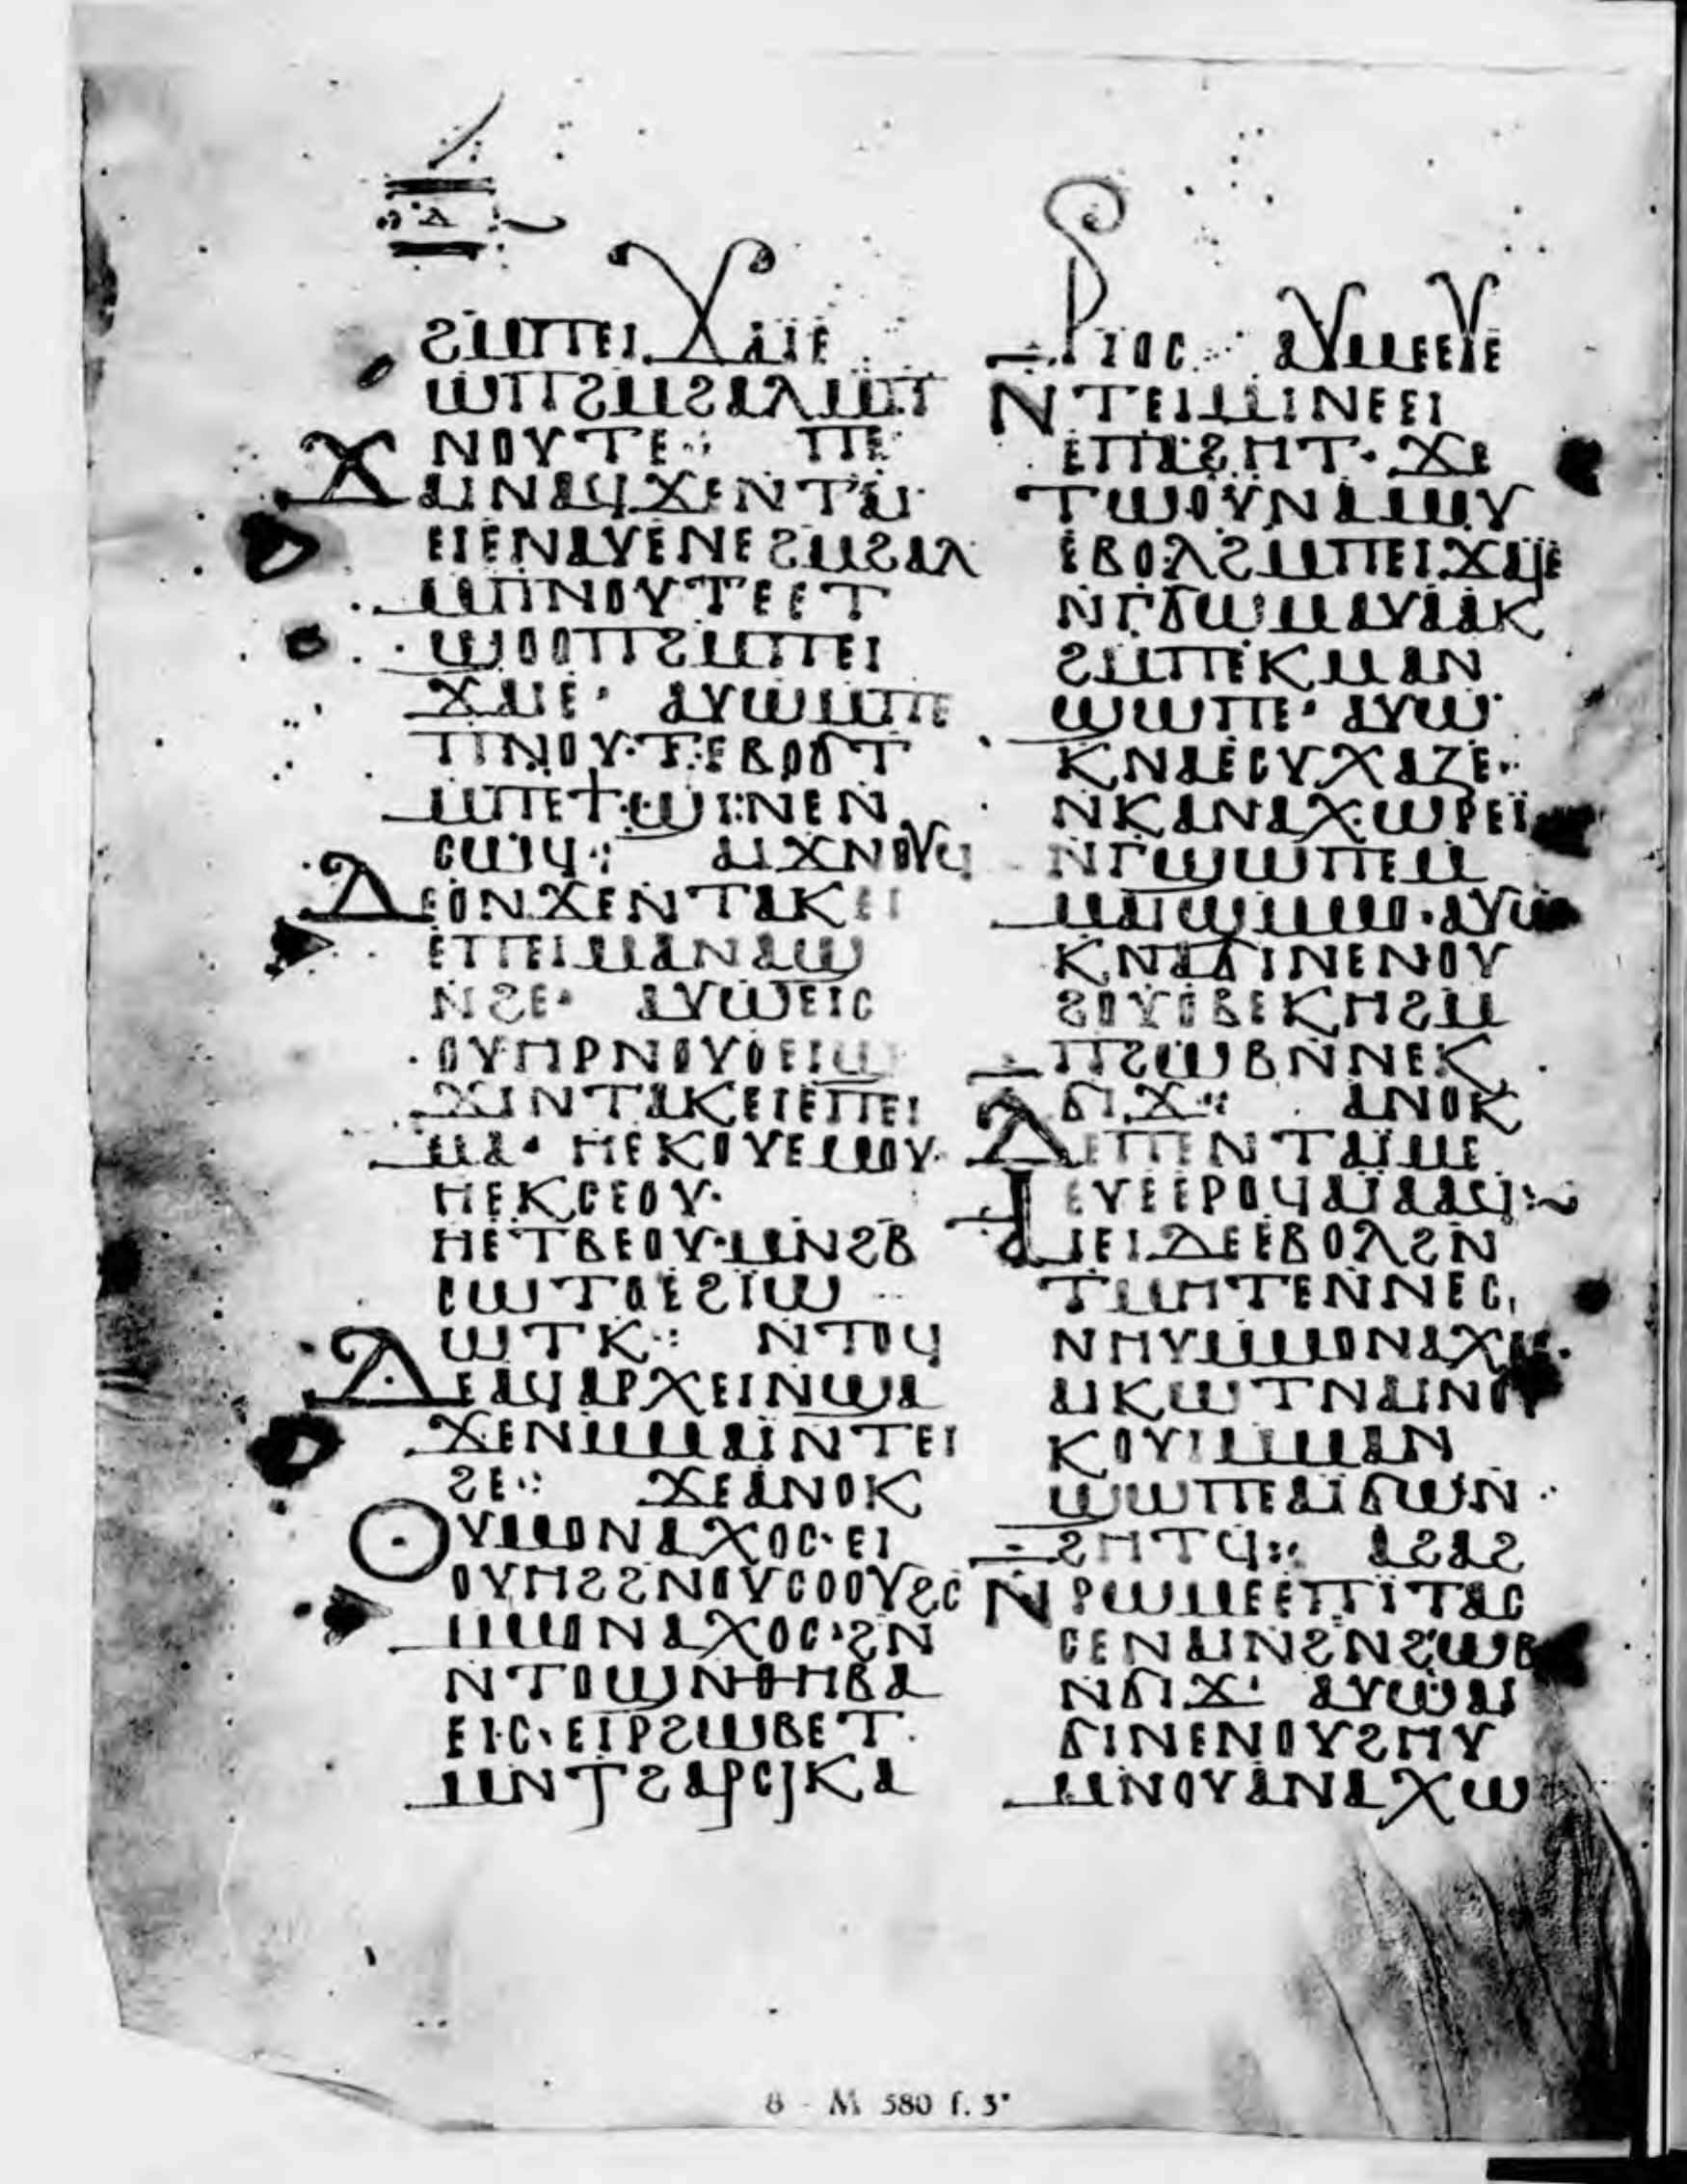 ⲇ
ϩⲙⲡⲉⲓϫⲁⲓⲉ
ϣⲡϩⲙϩⲁⲗⲙⲡ
ⲛⲟⲩⲧⲉ⁖ ⲡⲉ
ϫⲁⲓⲛⲁϥϫⲉⲛⲧⲁⲓ
ⲉⲓⲉⲛⲁⲩⲉⲛⲉϩⲙϩⲁⲗ
ⲙⲡⲛⲟⲩⲧⲉⲉⲧ
ϣⲟⲟⲡϩⲙⲡⲉⲓ
ϫⲁⲓⲉ· ⲁⲩⲱⲙⲡⲉ
ⲡⲛⲟⲩⲧⲉⲃⲟϭⲧ
ⲙⲡⲉϯϣⲓⲛⲉⲛ
ⲥⲱϥ⁖ ⲁⲓϫⲛⲟⲩϥ
ⲇⲉⲟⲛϫⲉⲛⲧⲁⲕⲉⲓ
ⲉⲡⲉⲓⲙⲁⲛⲁϣ
ⲛϩⲉ· ⲁⲩⲱⲉⲓⲥ
ⲟⲩⲏⲣⲛⲟⲩⲟⲉⲓϣ
ϫⲓⲛⲧⲁⲕⲉⲓⲉⲡⲉⲓ
ⲙⲁ· ⲏⲉⲕⲟⲩⲉⲙⲟⲩ·
ⲏⲉⲕⲥⲉⲟⲩ·
ⲏⲉⲧⲃⲉⲟⲩ·ⲙⲛϩⲃ
ⲥⲱⲧⲟⲉϩⲓⲱ
ⲱⲧⲕ⁖ ⲛⲧⲟϥ
ⲇⲉⲁϥⲁⲣⲭⲉⲓⲛϣⲁ
ϫⲉⲛⲙⲙⲁⲓⲛⲧⲉⲓ
ϩⲉ⁖ ϫⲉⲁⲛⲟⲕ
ⲟⲩⲙⲟⲛⲁⲭⲟⲥ·ⲉⲓ
ⲟⲩⲏϩϩⲛⲟⲩⲥⲟⲟⲩϩⲥ
ⲙⲙⲟⲛⲁⲭⲟⲥ·ϩⲛ
ⲛⲧⲟϣⲛⲑⲏⲃⲁ
ⲉⲓⲥ·ⲉⲓⲣϩⲱⲃⲉⲧ
ⲙⲛⲧϩⲁⲣⲥⲓⲕⲁ
ⲣⲓⲟⲥ⁖ ⲁⲩⲙⲉⲉⲩⲉ
ⲛⲧⲉⲓⲙⲓⲛⲉⲉⲓ
ⲉⲡⲁϩⲏⲧ· ϫⲉ
ⲧⲱⲟⲩⲛⲁⲙⲟⲩ
ⲉⲃⲟⲗϩⲙⲡⲉⲓϫⲁⲓⲉ
ⲛⲅϭⲱⲙⲁⲩⲁⲁⲕ
ϩⲙⲡⲉⲕⲙⲁⲛ
ϣⲱⲡⲉ· ⲁⲩⲱ
ⲕⲛⲁⲉⲥⲩⲭⲁⲍⲉ·
ⲛⲕⲁⲛⲁⲭⲱⲣⲉⲓ
ⲛⲅϣⲱⲡⲉⲙ
ⲙⲁⲓϣⲙⲙⲟ·ⲁⲩⲱ
ⲕⲛⲁϭⲓⲛⲉⲛⲟⲩ
ϩⲟⲩⲟⲃⲉⲕⲏϩⲙ
ⲡϩⲱⲃⲛⲛⲉⲕ
ϭⲓϫ⁖ ⲁⲛⲟⲕ
ⲇⲉⲡⲉⲛⲧⲁⲓⲙⲉ
ⲉⲩⲉⲉⲣⲟϥⲁⲓⲁⲁϥ⁖
ⲁⲓⲉⲓⲇⲉⲉⲃⲟⲗϩⲛ
ⲧⲙⲏⲧⲉⲛⲛⲉⲥ
ⲛⲏⲩⲙⲙⲟⲛⲁⲭⲟⲥ·
ⲁⲓⲕⲱⲧⲛⲁⲓⲛⲟⲩ
ⲕⲟⲩⲓⲙⲙⲁⲛ
ϣⲱⲡⲉⲁⲓϭⲱⲛ
ϩⲏⲧϥ⁖ ⲁϩⲁϩ
ⲛⲣⲱⲙⲉⲉⲡⲓⲧⲁⲥ
ⲥⲉⲛⲁⲓⲛϩⲛϩⲱⲃ
ⲛϭⲓϫ· ⲁⲩⲱⲁⲓ
ϭⲓⲛⲉⲛⲟⲩϩⲏⲩ
ⲙⲛⲟⲩⲁⲛⲁⲭⲱ
8 - M 580 f. 3ᵛ